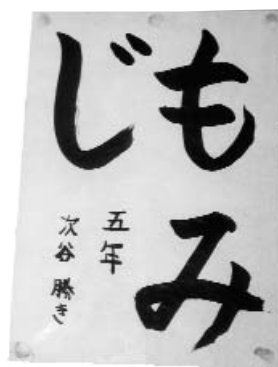 もみ
じ
五年
次谷 勝き